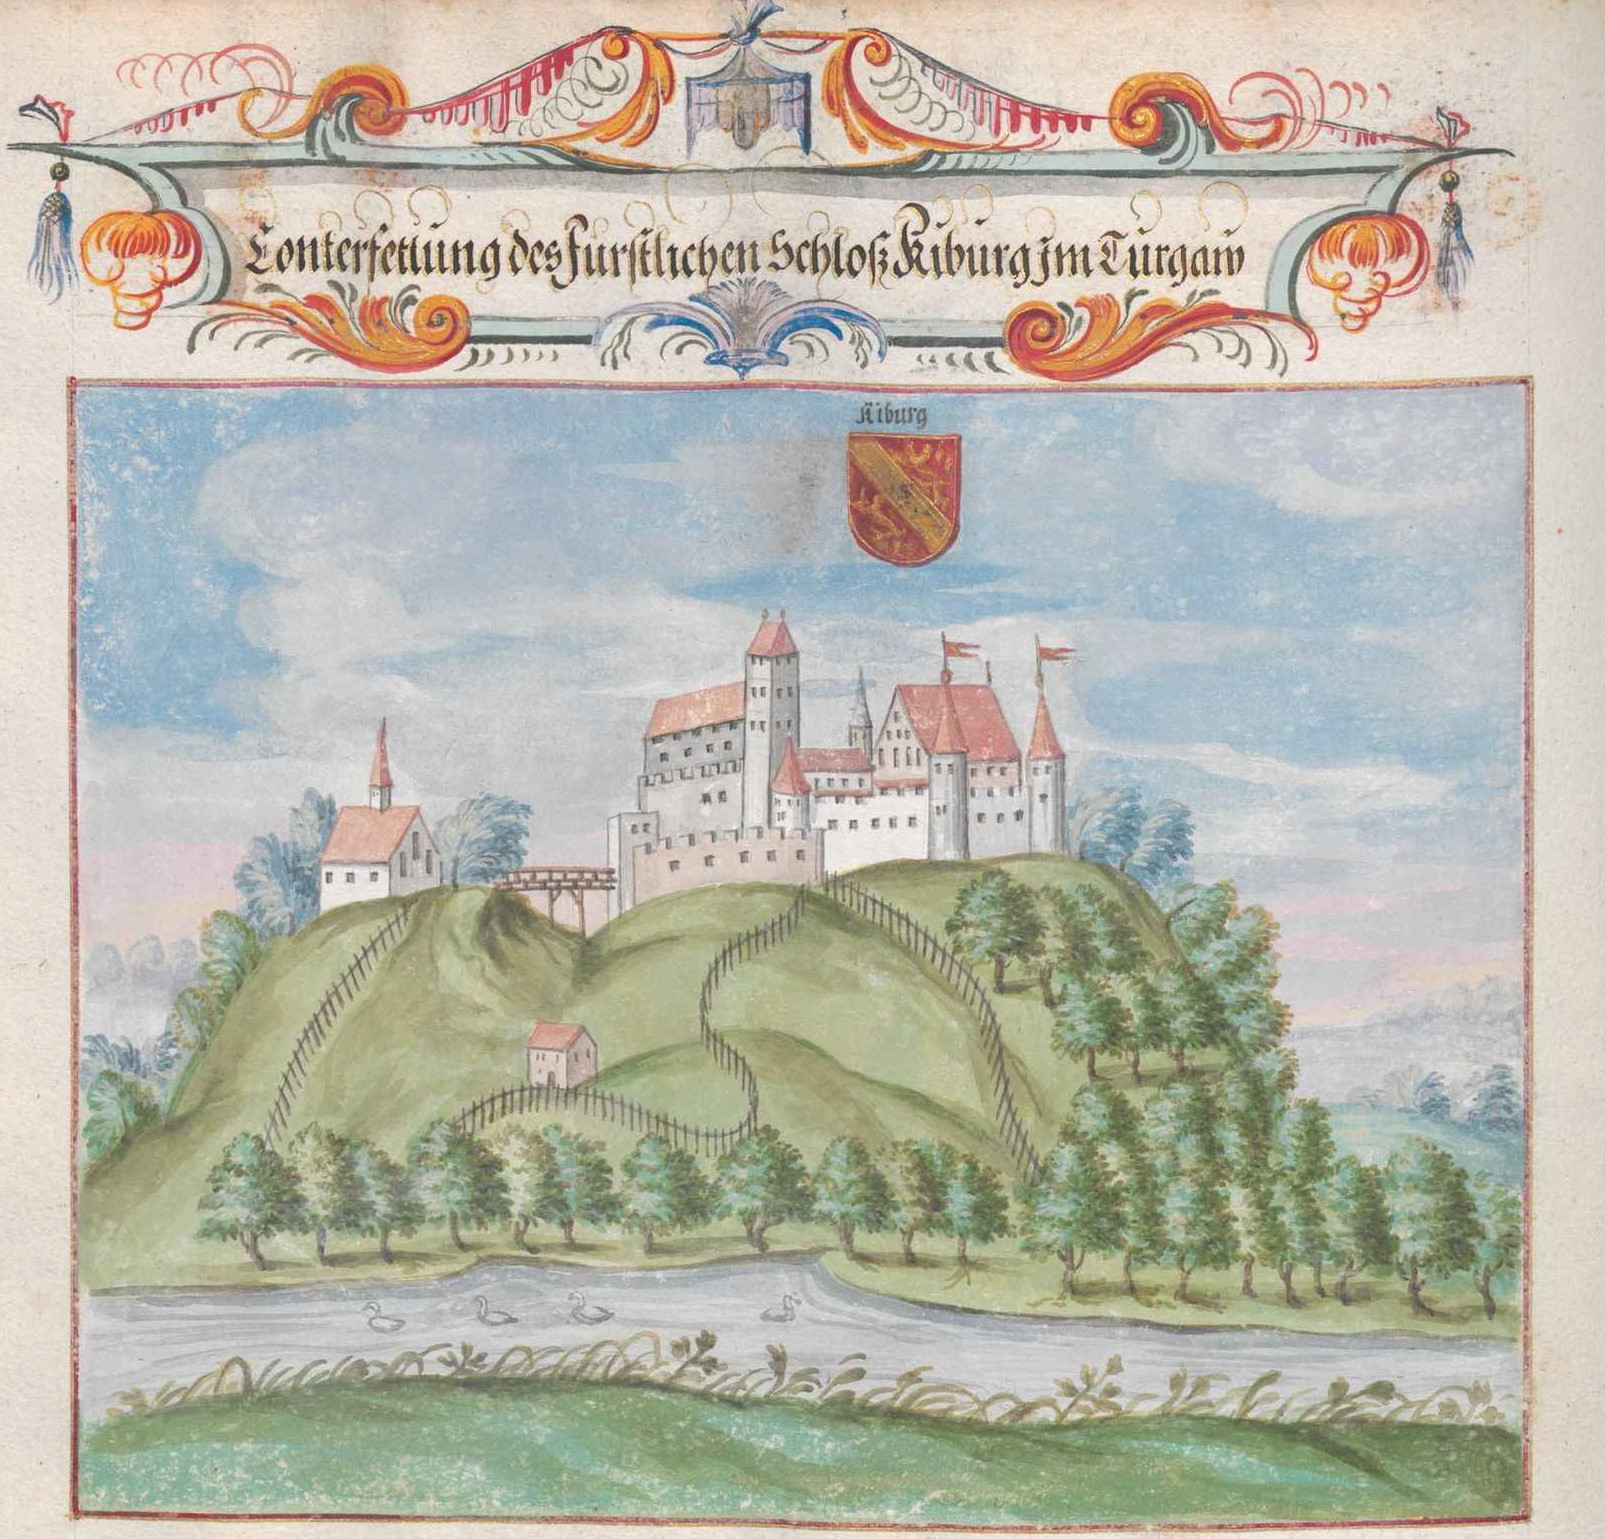 Conterfettung des Fürstlichen Schloß Kiburg jm Turgaw
Kiburg